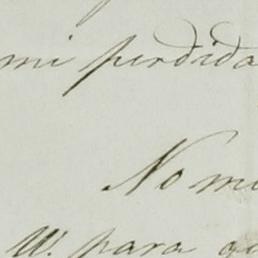 mi perdida
No mi
W. para